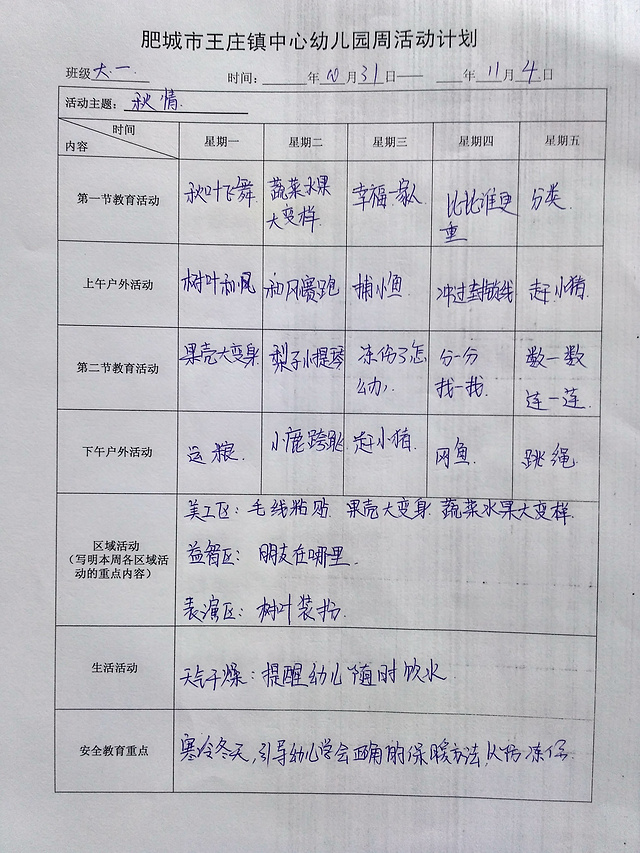 肥城市王庄镇中心幼儿园周活动计划
班级 大一 时间： 年 10 月 31 日—— 年 11 月 4 日
活动主题： 秋情
时间
内容
星期一 星期二 星期三 星期四 星期五
第一节教育活动 秋叶飞舞 蔬菜水果 幸福一家人 比比谁更 分类
大变样 重
上午户外活动 树叶和风 和风赛跑 捕小鱼 冲过封锁线 赶小猪
第二节教育活动 果壳大变身 梨子小提琴 冻伤了怎 分一分 数一数
么办 找一找 连一连
下午户外活动 运粮 小鹿跨跳 赶小猪 网鱼 跳绳
美工区：毛线粘贴 果壳大变身 蔬菜水果大变样
区域活动
（写明本周各区域活 益智区：朋友在哪里
动的重点内容）
表演区：树叶装扮
生活活动 天气干燥：提醒幼儿随时饮水
安全教育重点 寒冷冬天，引导幼儿学会正确的保暖方法，以防冻伤